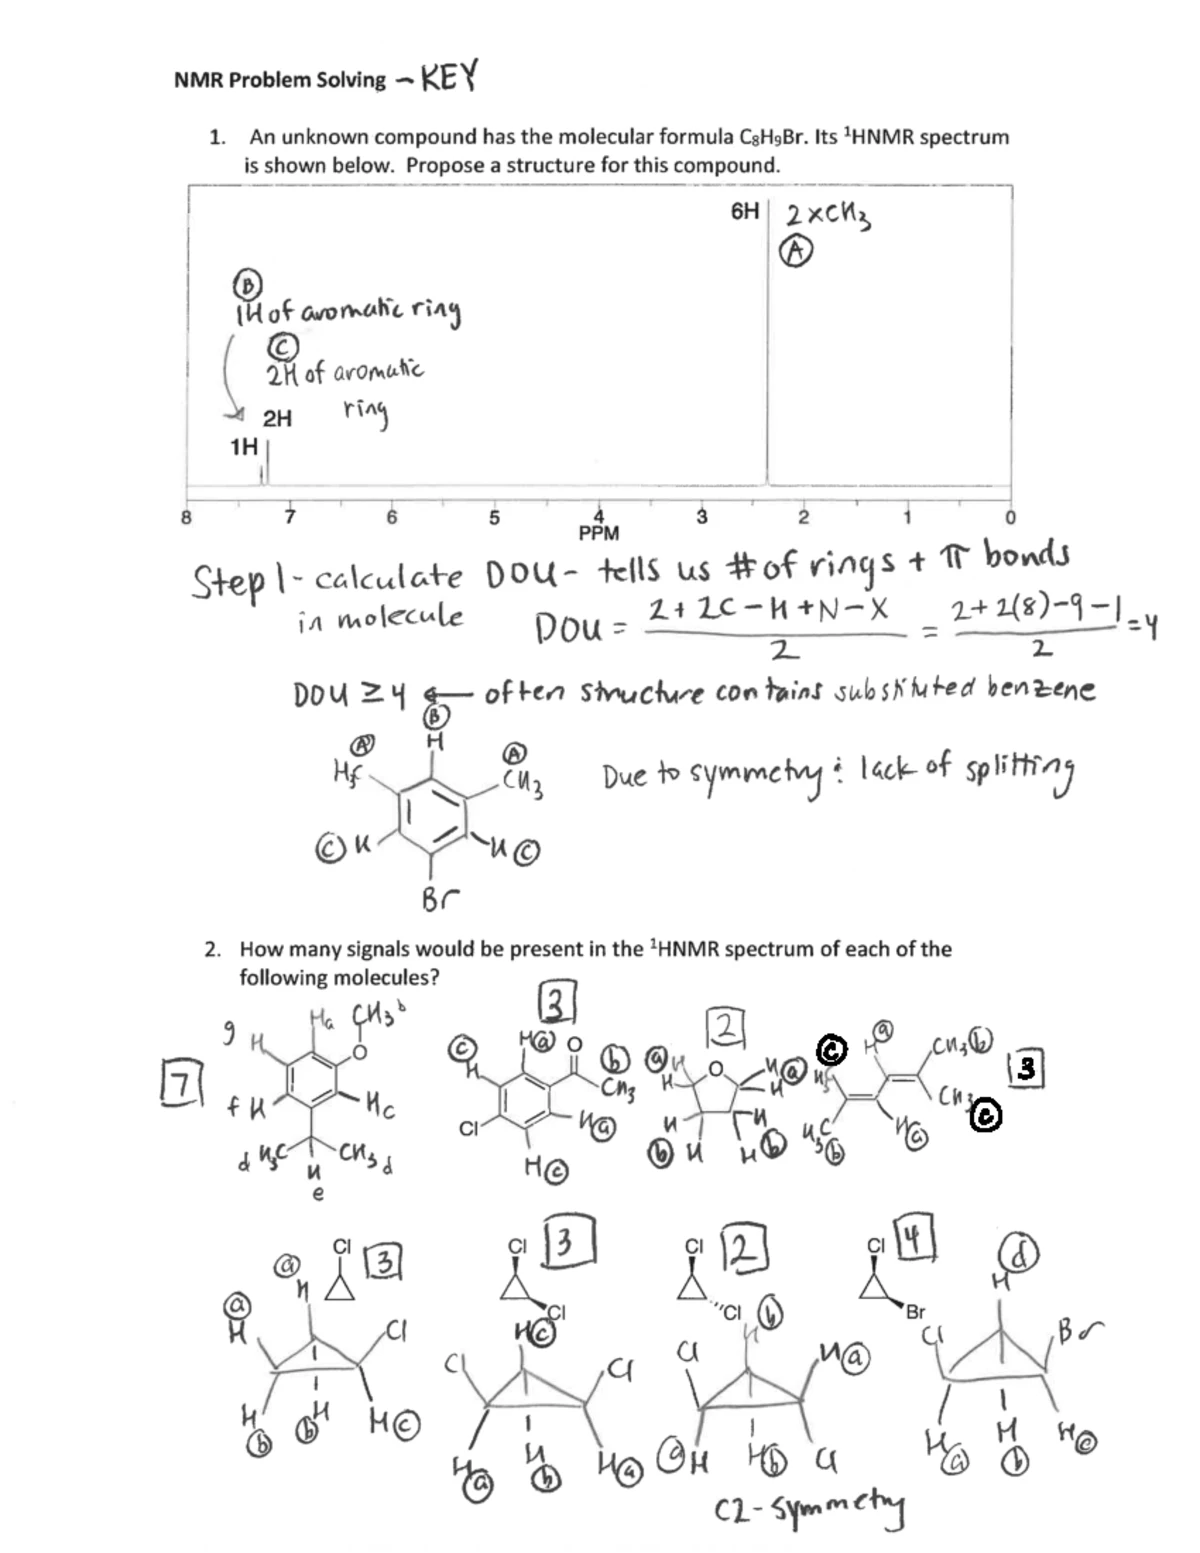 NMR Problem Solving – KEY
1. An unknown compound has the molecular formula C₈H₉Br. Its ¹HNMR spectrum
is shown below. Propose a structure for this compound.
6H 2 x CH₃
Ⓐ
Ⓑ
1H of aromatic ring
Ⓒ
2H of aromatic
ring
2H
1H
8 7 6 5 4 3 2 1 0
PPM
Step 1 - calculate DOU - tells us # of rings + π bonds
in molecule DOU = 2 + 2C - H + N - X / 2 = 2 + 2(8) - 9 - 1 / 2 = 4
DOU ≥ 4 ← often structure contains substituted benzene
Ⓑ
Ⓐ H Ⓐ
CH₃ Due to symmetry & lack of splitting
Ⓒ H H Ⓒ
Br
2. How many signals would be present in the ¹HNMR spectrum of each of the
following molecules?
3
Ha CH₃ᵇ
g H O
7
f H Hc
d H₃C CH₃ d
H
e
Ⓒ H HⓐO ⓑ CH₃
Cl Hⓐ
HⒸ
2
ⓐ H O H ⓐ
H H
H H
ⓑ H H ⓑ
Ⓒ H ⓐ CH₃ ⓑ 3
H CH₃ Ⓒ
H₃C ⓑ Hⓐ
Cl 3
Cl 3
Cl
Cl 2
Cl
Cl 4
Br
ⓐ H
ⓐ H Cl
H ⓑ H ⓑ H Ⓒ
HⒸ
Cl Cl
Hⓐ H ⓑ Hⓐ
ⓑ H
Cl Hⓐ
ⓐ H Hⓑ Cl
C2 - symmetry
ⓓ
H
Cl Br
Hⓐ H ⓑ HⒸ